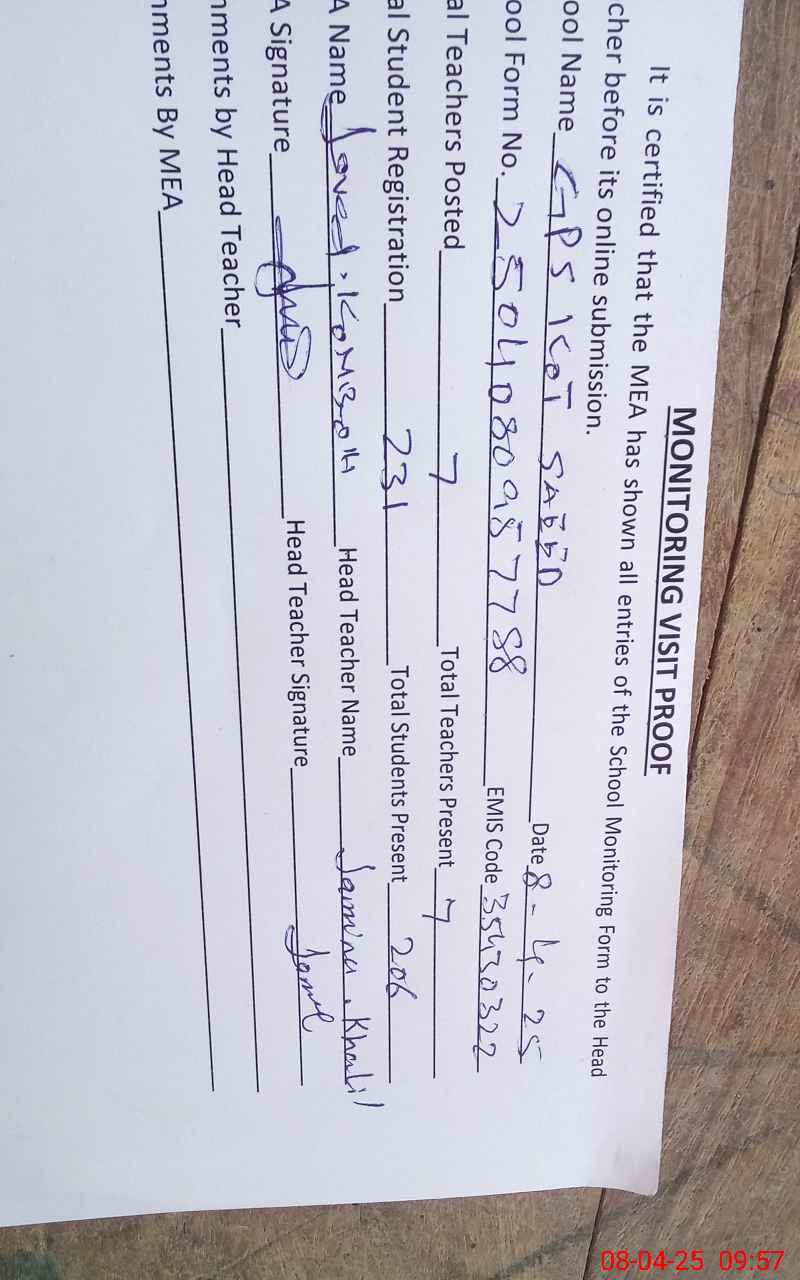 MONITORING VISIT PROOF
It is certified that the MEA has shown all entries of the School Monitoring Form to the Head
cher before its online submission.
ool Name GPS KOT SAEED Date 8-4-25
ool Form No. 2504080957788 EMIS Code 35430322
al Teachers Posted 7 Total Teachers Present 7
al Student Registration 231 Total Students Present 206
A Name Javed. KOMBOH Head Teacher Name Samina. Khalil
A Signature Head Teacher Signature
nments by Head Teacher
nments By MEA
08-04-25 09:57